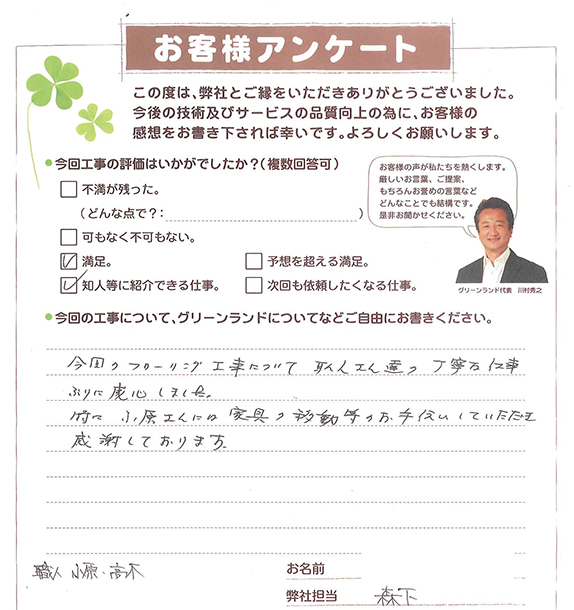 お客様アンケート
この度は、弊社とご縁をいただきありがとうございました。
今後の技術及びサービスの品質向上の為に、お客様の
感想をお書き下されば幸いです。よろしくお願いします。
今回工事の評価はいかがでしたか?(複数回答可)
不満が残った。
(どんな点で?: )
可もなく不可もない。
満足。
予想を超える満足。
知人等に紹介できる仕事。
次回も依頼したくなる仕事。
お客様の声が私たちを熱くします。
厳しいお言葉、ご提案、
もちろんお誉めの言葉など
どんなことでも結構です。
是非お聞かせください。
グリーンランド代表 川村秀之
今回の工事について、グリーンランドについてなどご自由にお書きください。
今回のフローリング工事について 職人さん達の丁寧な仕事
ぶりに感心しました。
特に小原さんには家具の移動等のお手伝いしていただき
感謝しております。
職人 小原・高木
お名前
弊社担当 森下